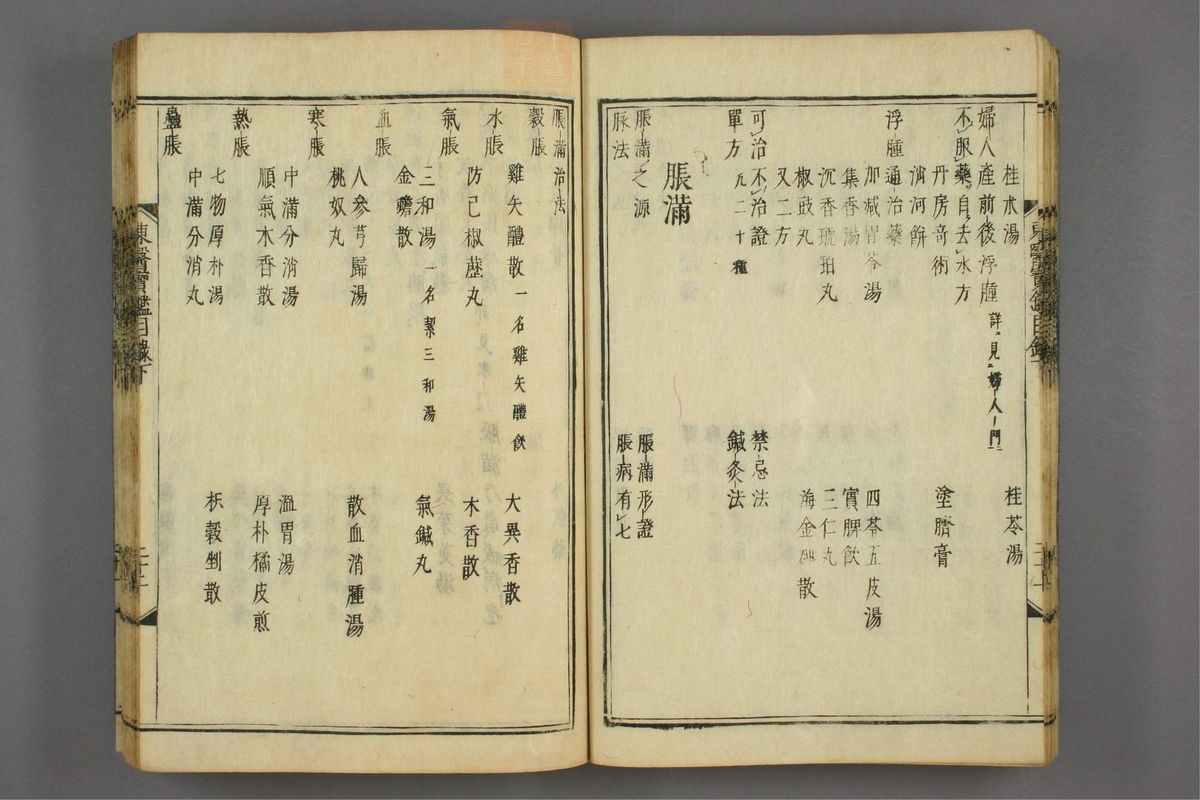 桂朮湯 桂苓湯
婦人産前後浮腫 詳見婦人門
不服藥自去水方
丹房奇術 塗臍膏
消河餅
浮腫通治藥
加減胃苓湯 四苓五皮湯
集香湯 實脾飮
沉香琥珀丸 三仁丸
椒豉丸 海金砂散
又二方
可治不治證 禁忌法
單方 凡二十種 鍼灸法
脹滿
脹滿之源 脹滿形證
脈法 脹病有七
東醫寶鑑目錄下
脹滿治法
穀脹
雞矢醴散 一名雞矢醴飮 大異香散
水脹
防己椒藶丸 木香散
氣脹
三和湯 一名絜三和湯 氣鍼丸
金蟾散
血脹
人參芎歸湯 散血消腫湯
桃奴丸
寒脹
中滿分消湯 溫胃湯
順氣木香散 厚朴橘皮煎
熱脹
七物厚朴湯 枳殼剉散
中滿分消丸
蠱脹
東醫寶鑑目錄下